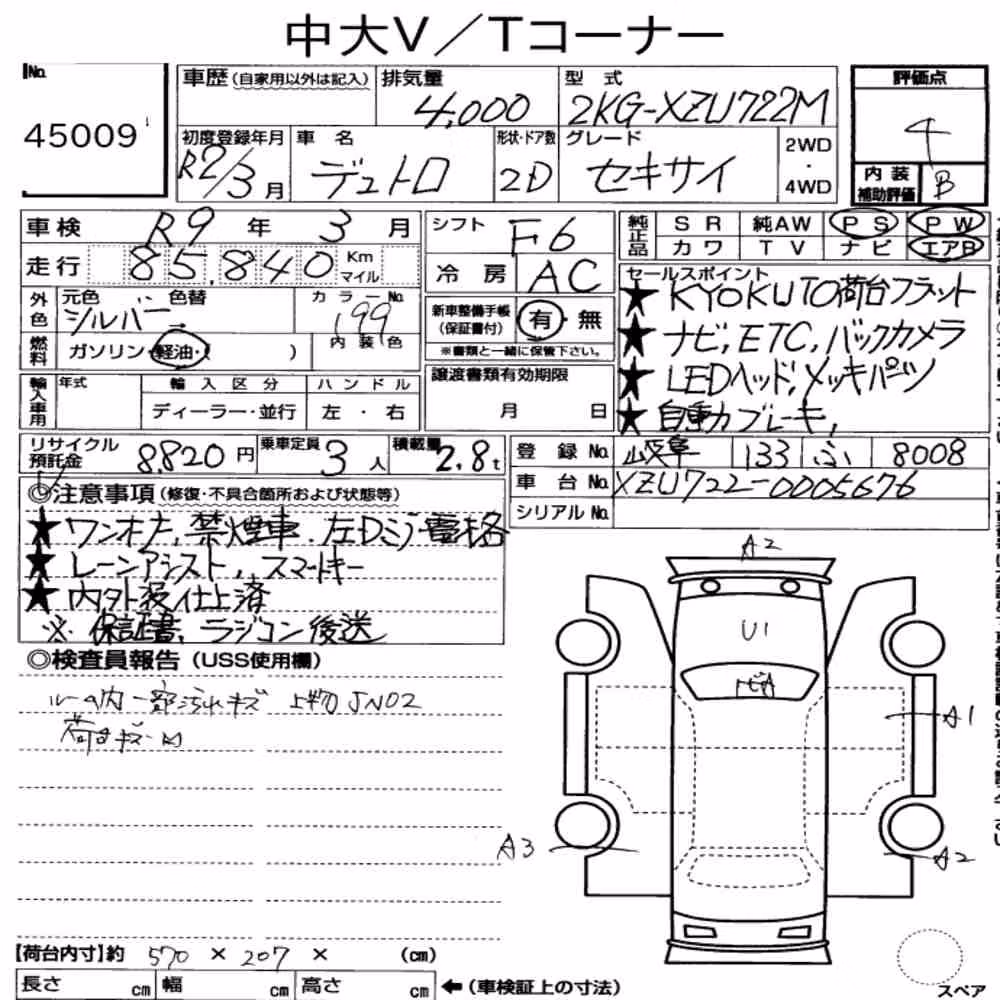 中大V／Tコーナー
No. 45009
車歴（自家用以外は記入） 排気量 4,000 型式 2KG-XZU722M
初度登録年月 R2/3月 車名 デュトロ 形状・ドア数 2D グレード セキサイ 2WD・4WD
評価点 4
内装補助評価 B
車検 R9年 3月
走行 85,840 Km マイル
シフト F6
冷房 AC
純正品 SR 純AW PS PW
カワ TV ナビ エアB
外色 元色 シルバー 色替 カラーNo. 199
燃料 ガソリン・軽油・( ) 内装色
新車整備手帳（保証書付） 有・無
※書類と一緒に保管下さい。
セールスポイント
★KYOKUTO荷台フラット
★ナビ,ETC,バックカメラ
★LEDヘッド,メッキパーツ
★自動ブレーキ,
輸入車用 年式 輸入区分 ハンドル
ディーラー・並行 左・右
譲渡書類有効期限
月 日
リサイクル預託金 8,820円 乗車定員 3人 積載量 2.8t
登録No. 岐阜 133 ふ 8008
車台No. XZU722-0005676
シリアルNo.
◎注意事項（修復・不具合箇所および状態等）
★ワンオナ,禁煙車.左Dミラー電格
★レーンアシスト,スマートキー
★内外装仕上済
※保証書、ラジコン後送
◎検査員報告（USS使用欄）
ルーム内一部汚れキズ 上物JN02
荷台キズ・凹
A2
U1
A1
A3
A2
【荷台内寸】約 570 × 207 × （cm）
長さ cm 幅 cm 高さ cm ←（車検証上の寸法）
スペア